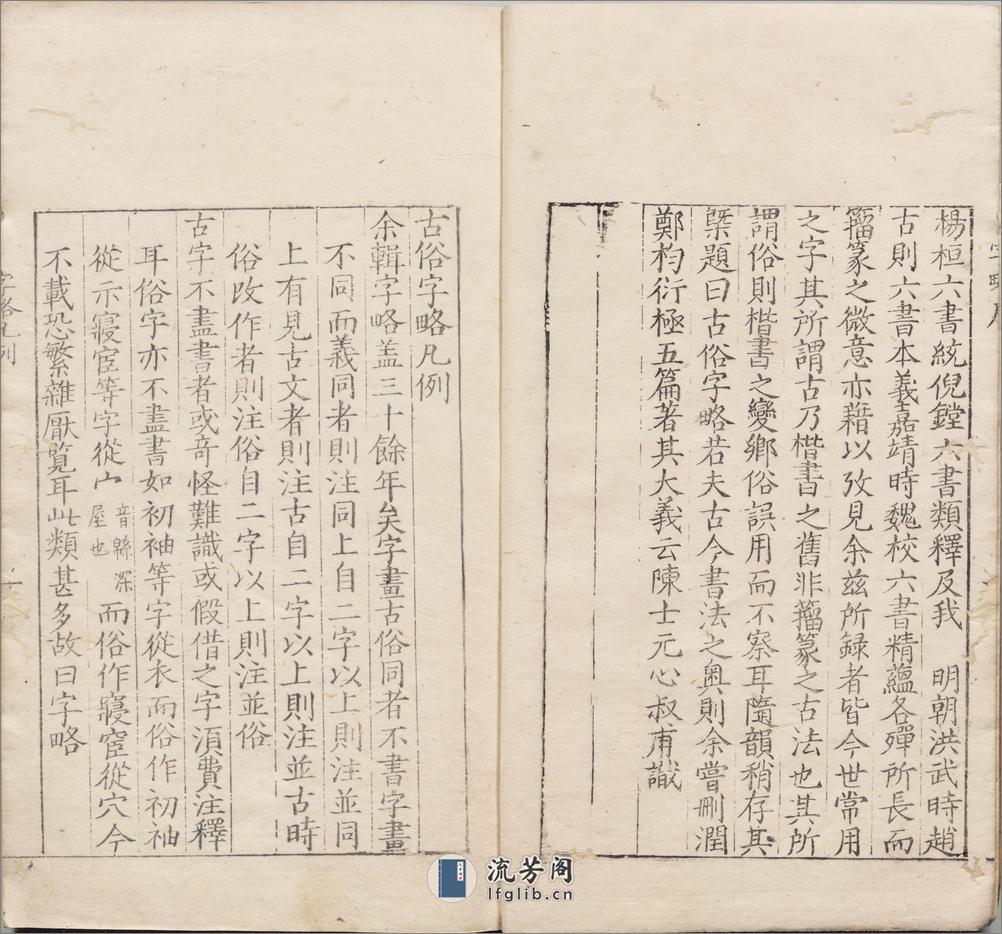 楊桓六書統倪鏜六書類釋及我　明朝洪武時趙
古則六書本義嘉靖時魏校六書精蘊各殫所長而
籀篆之微意亦藉以攷見余兹所録者皆今世常用
之字其所謂古乃楷書之舊非籀篆之古法也其所
謂俗則楷書之變鄉俗誤用而不察耳隨韻稍存其
槩題曰古俗字略若夫古今書法之奥則余嘗刪潤
鄭杓衍極五篇著其大義云陳士元心叔甫識
古俗字略凡例
余輯字略盖三十餘年矣字畫古俗同者不書字畫
不同而義同者則注同上自二字以上則注並同
上有見古文者則注古自二字以上則注並古時
俗改作者則注俗自二字以上則注並俗
古字不盡書者或奇怪難識或假借之字須費注釋
耳俗字亦不盡書如初袖等字從衣而俗作初袖
從示寢宧等字從宀音緜深屋也而俗作寢窅從穴今
不載恐繁雜厭覧耳此類甚多故曰字略
字略凡例
流芳阁
lfglib.cn